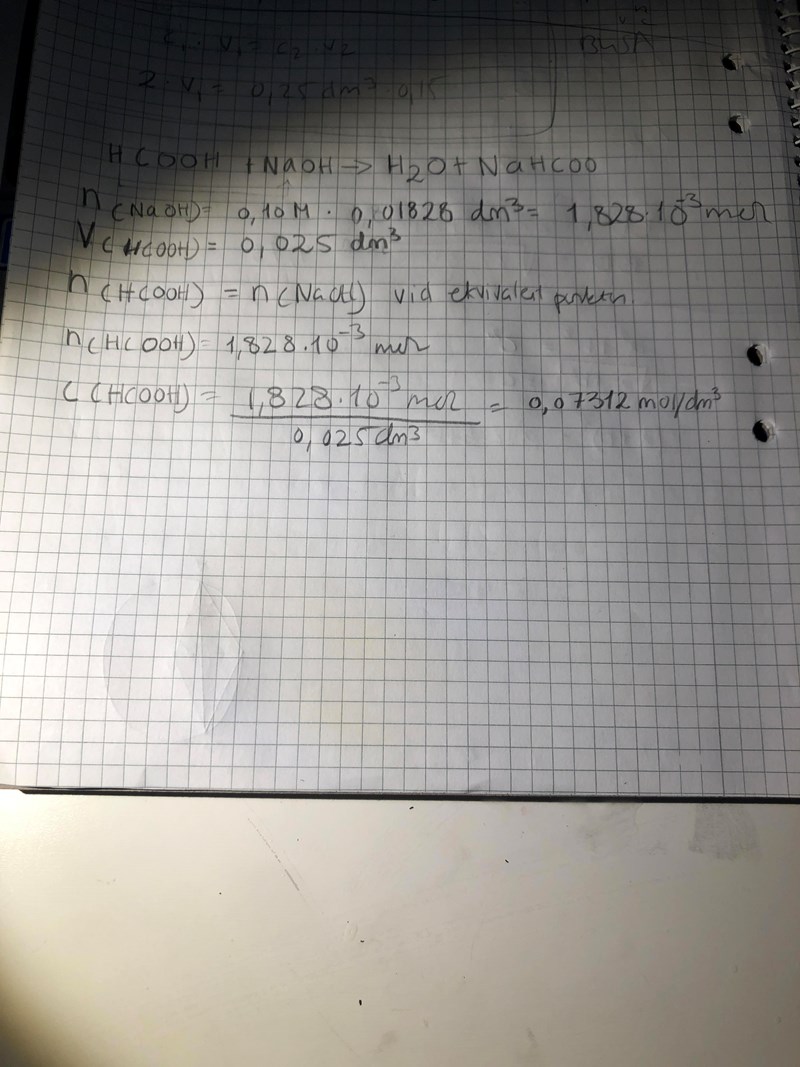 C₁ · V₁ = C₂ · V₂
2 · V₁ = 0,25 dm³ · 0,15
HCOOH + NaOH → H₂O + NaHCOO
n(NaOH) = 0,10 M · 0,01828 dm³ = 1,828·10⁻³ mol
V(HCOOH) = 0,025 dm³
n(HCOOH) = n(NaOH) vid ekvivalent punkten.
n(HCOOH) = 1,828·10⁻³ mol
C(HCOOH) = 1,828·10⁻³ mol = 0,07312 mol/dm³
0,025 dm³